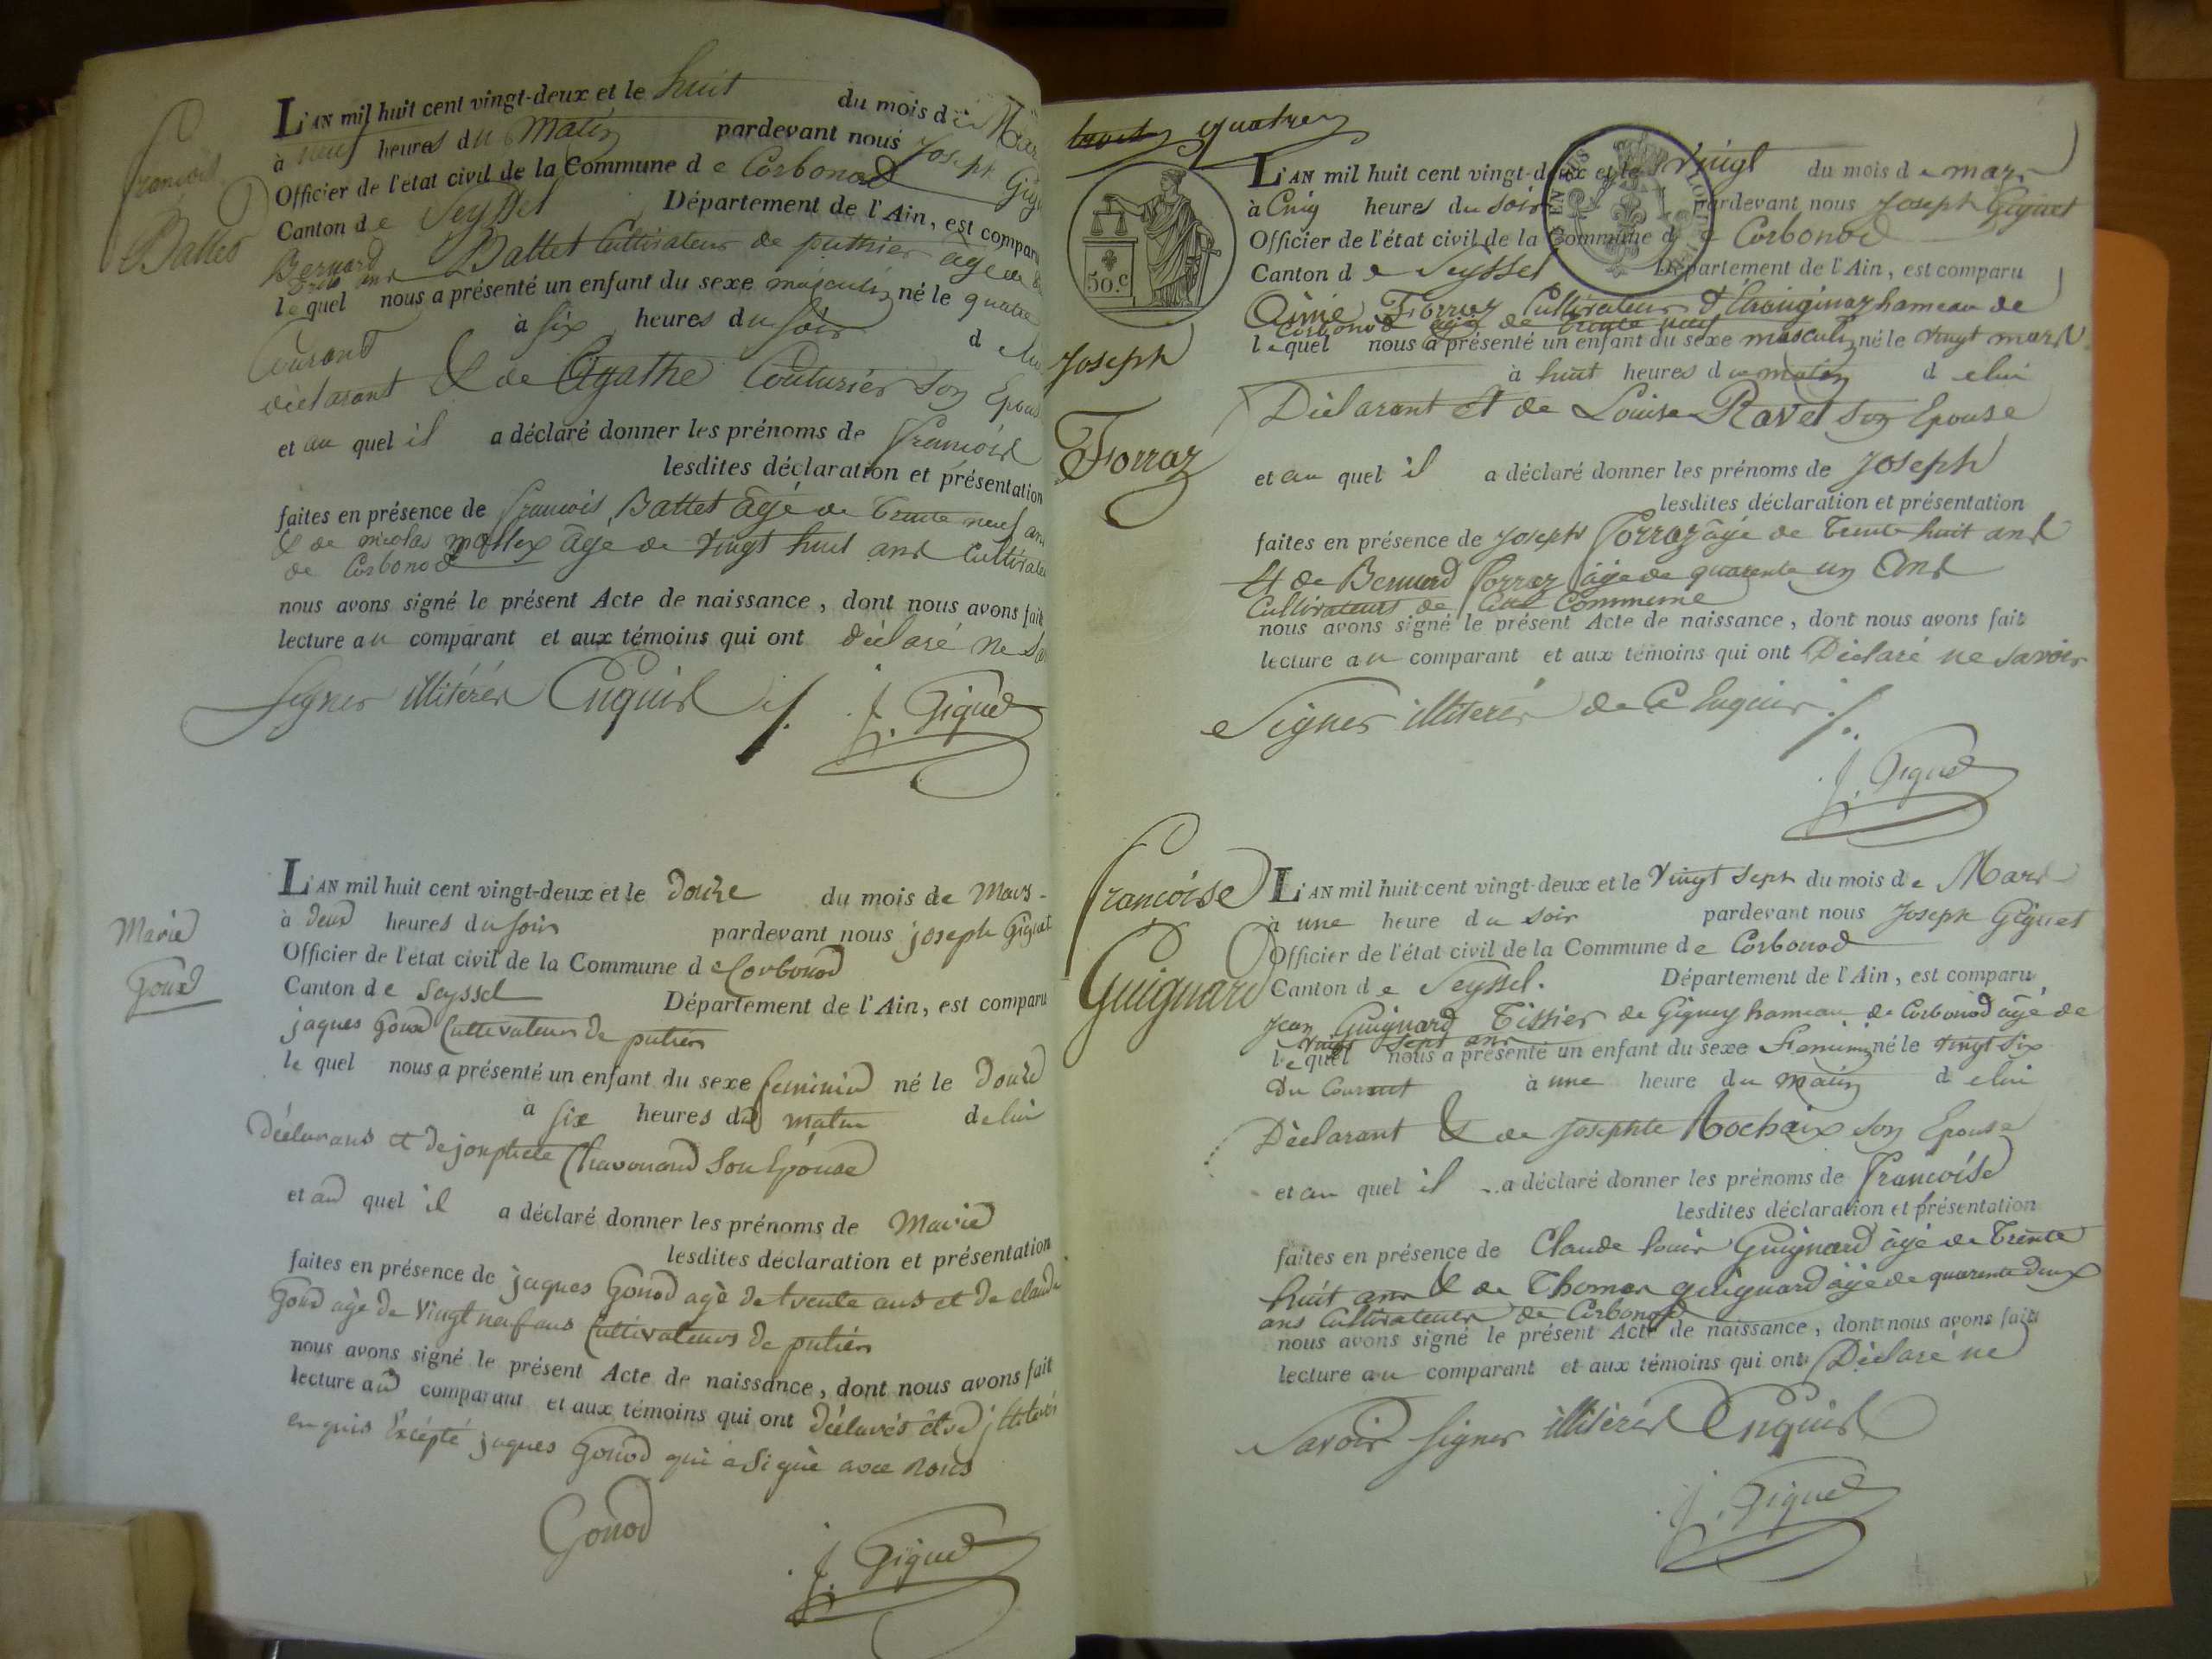 François
Battet
L'AN mil huit cent vingt-deux et le huit du mois de Mars
à neuf heures du Matin pardevant nous Joseph
Officier de l'état civil de la Commune de Corbonod
Canton de Seyssel Département de l'Ain, est comparu
Bernard Battet Cultivateur de puthier âgé de
lequel nous a présenté un enfant du sexe masculin né le quatre
Courant à six heures du soir de lui
déclarant & de Agathe Couturier son Epouse
et au quel il a déclaré donner les prénoms de François
lesdites déclaration et présentation
faites en présence de François Battet âgé de trente neuf ans
& de nicolas mallex âgé de vingt huit ans Cultivateurs
de Corbonod
nous avons signé le présent Acte de naissance, dont nous avons fait
lecture au comparant et aux témoins qui ont déclaré ne
signer illitérés Enquis ./. J. Giguet
Marie
Goux
L'AN mil huit cent vingt-deux et le douze du mois de Mars
à deux heures du soir pardevant nous joseph Giguet
Officier de l'état civil de la Commune de Corbonod
Canton de Seyssel Département de l'Ain, est comparu
jaques Goux Cultivateur de putier
lequel nous a présenté un enfant du sexe feminin né le douze
à six heures du matin de lui
déclarans et de josephte Chavonand son Epouse
et au quel il a déclaré donner les prénoms de Marie
lesdites déclaration et présentation
faites en présence de jaques Gonod agé de trente ans et de claude
Goux agé de vingt neuf ans Cultivateurs de putier
nous avons signé le présent Acte de naissance, dont nous avons fait
lecture au comparant et aux témoins qui ont déclarés être illiterés
enquis Excépté jaques Gonod qui a signé avec nous
Gonod J. Giguet
feuillet quatre
50.c
Joseph
Forraz
L'AN mil huit cent vingt-deux et le Vingt du mois de mars
à Cinq heures du soir pardevant nous Joseph Giguet
Officier de l'état civil de la Commune de Corbonod
Canton de Seyssel Département de l'Ain, est comparu
Aimé Forraz Cultivateur d'Etranginaz hameau de
Corbonod agé de trente neuf
lequel nous a présenté un enfant du sexe masculin né le vingt mars
à huit heures du matin de lui
Déclarant et de Louise Ravel son Epouse
et au quel il a déclaré donner les prénoms de Joseph
lesdites déclaration et présentation
faites en présence de Joseph Forraz âgé de trente huit ans
et de Bernard Forraz âgé de quarente un Ans
Cultivateurs de Commune
nous avons signé le présent Acte de naissance, dont nous avons fait
lecture au comparant et aux témoins qui ont Déclaré ne savoir
Signer illiterés de Ce Enquis ./.
J. Giguet
Françoise
Guignard
L'AN mil huit cent vingt-deux et le Vingt sept du mois de Mars
à une heure du soir pardevant nous Joseph Giguet
Officier de l'état civil de la Commune de Corbonod
Canton de Seyssel. Département de l'Ain, est comparu
Jean Guignard Tissier de Gigney hameau de Corbonod âgé de
Vingt sept ans
lequel nous a présenté un enfant du sexe Feminin né le vingt six
Du Courant à une heure du matin de lui
Déclarant & de Josephte Rochaix son Epouse
et au quel il a déclaré donner les prénoms de Françoise
lesdites déclaration et présentation
faites en présence de Claude Louis Guignard âgé de trente
huit ans & de Thomas guignard âgé de quarente deux
ans Cultivateurs de Corbonod
nous avons signé le présent Acte de naissance, dont nous avons fait
lecture au comparant et aux témoins qui ont Déclaré ne
Savoir signer illitérés Enquis
J. Giguet